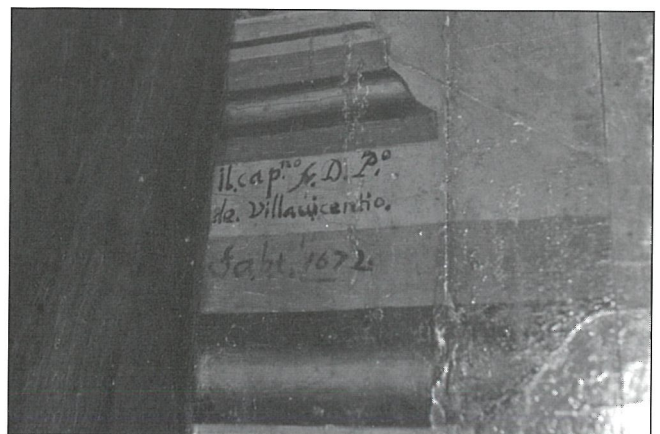 Il.cap.no fr. D. P.o
de. Villavicentio.
Fabt. 1672.